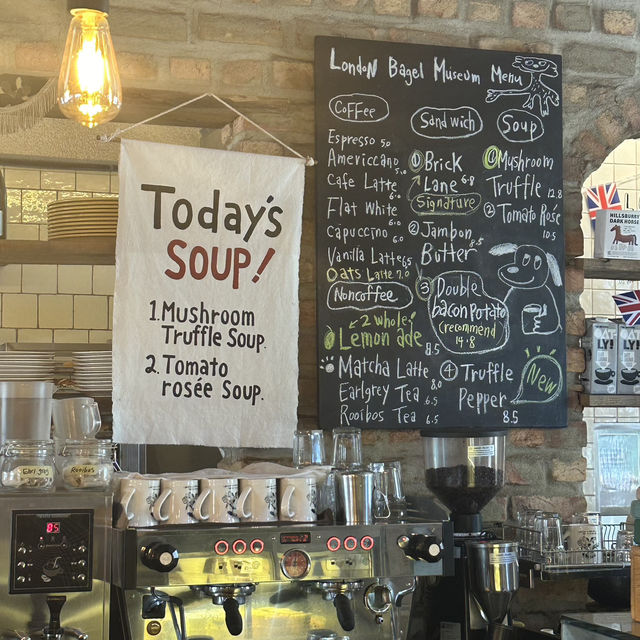 Today's
SOUP!
1. Mushroom
Truffle Soup.
2. Tomato
rosée Soup.
London Bagel Museum Menu
Coffee
Espresso 5.0
Americcano 5.0
Cafe Latte 6.0
Flat White 6.0
Capuccino 6.0
Vanilla Latte 6.5
Oats Latte 7.0
Noncoffee
2 whole
Lemon ade 8.5
Matcha Latte 8.0
Earlgrey Tea 6.5
Rooibos Tea 6.5
Sandwich
① Brick
Lane 6.8
Signature
② Jambon
Butter 8.5
③ Double
bacon potato
(recommend
14.8
④ Truffle
Pepper 8.5
New
Soup
① Mushroom
Truffle 12.8
② Tomato Rose
10.5
HILLSBURRY
DARK HORSE
Earl grey
Rooibos
85